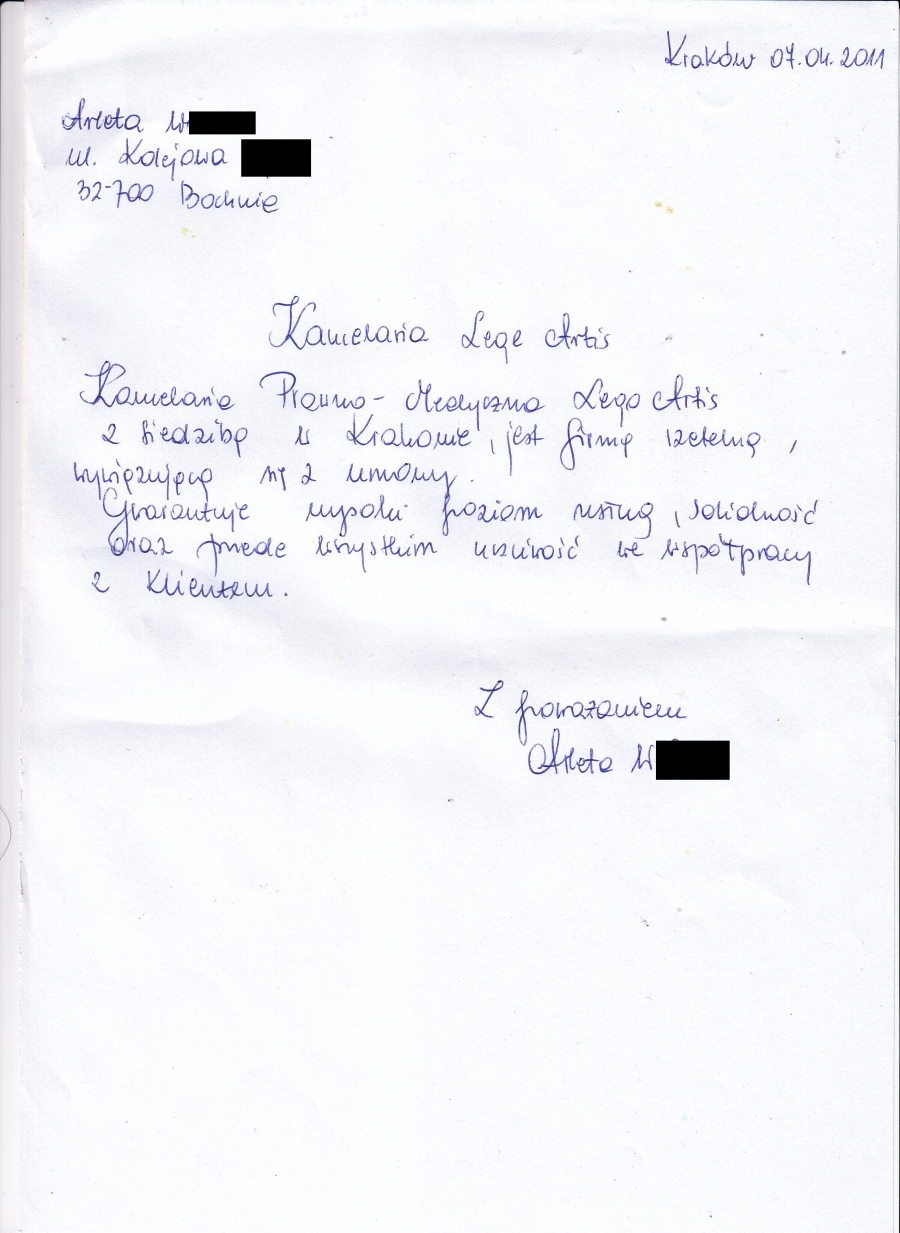 Kraków 07.04.2011
Arleta W
ul. Kolejowa
32-700 Bochnia
Kancelaria Lege Artis
Kancelaria Prawno-Medyczna Lege Artis
z siedzibą w Krakowie, jest firmą rzetelną,
wywiązującą się z umowy.
Gwarantuje wysoki poziom usług, solidność
oraz przede wszystkim uczciwość we współpracy
z klientem.
Z poważaniem
Arleta W